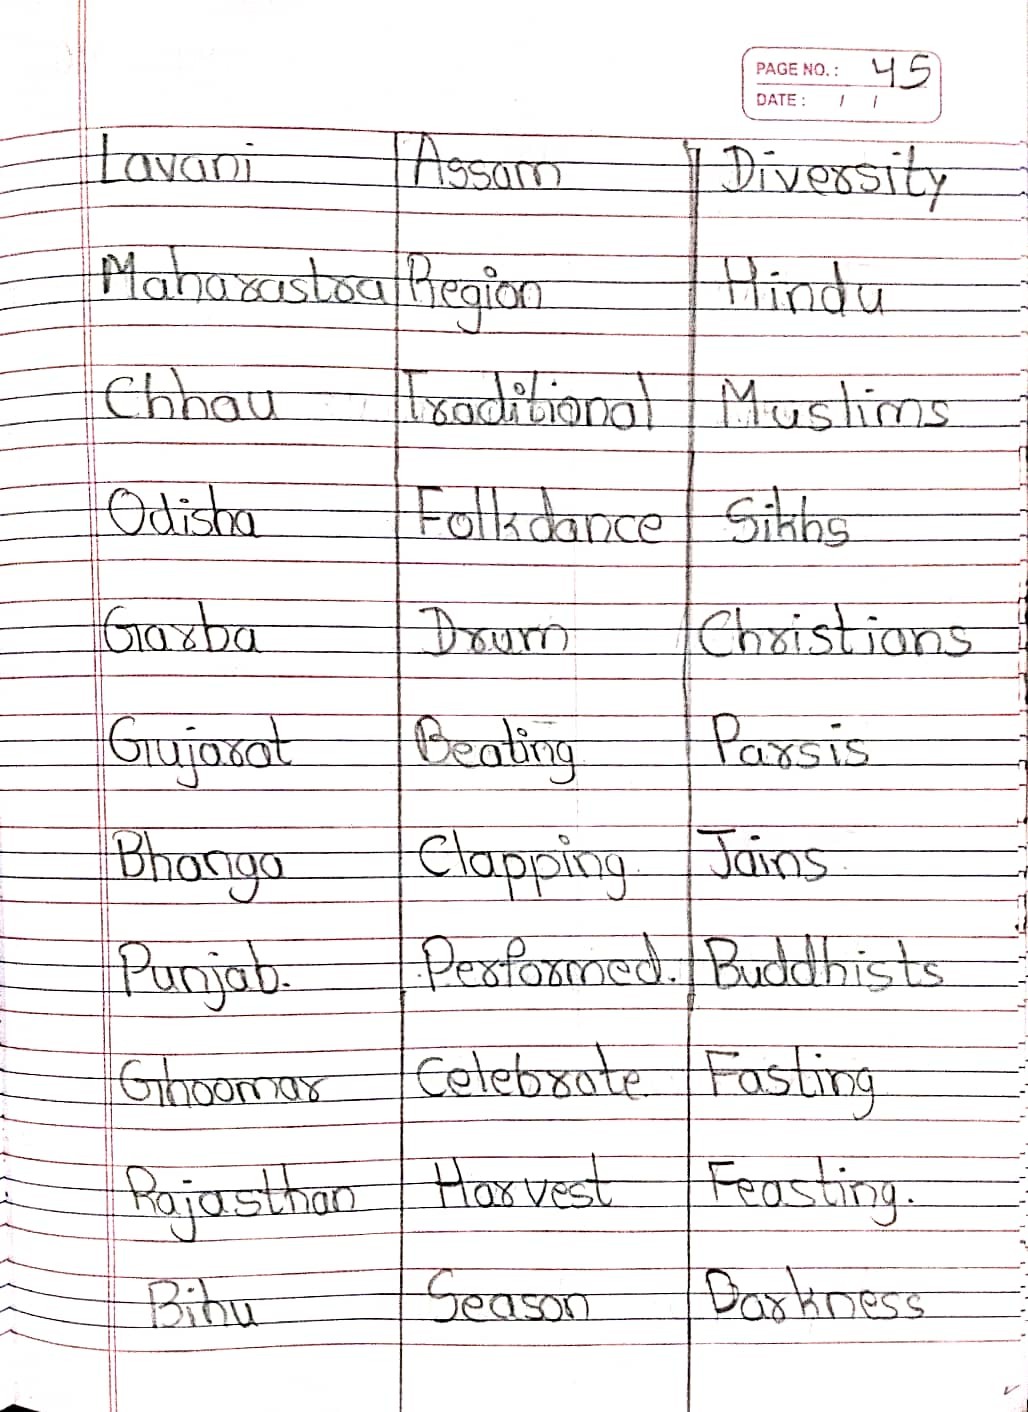 PAGE NO.: 45
DATE: / /
Lavani Assam Diversity
Maharastra Region Hindu
Chhau Traditional Muslims
Odisha Folkdance Sikhs
Garba Drum Christians
Gujarat Beating Parsis
Bhanga Clapping Jains
Punjab. Performed. Buddhists
Ghoomar Celebrate Fasting
Rajasthan Harvest Feasting.
Bihu Season Darkness